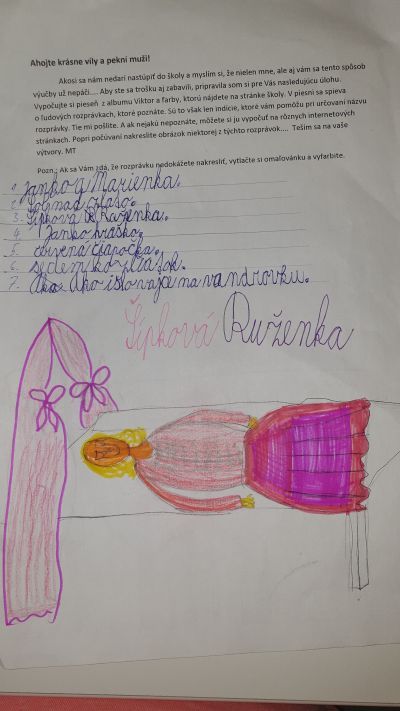 Ahojte krásne víly a pekní muži!
Akosi sa nám nedarí nastúpiť do školy a myslím si, že nielen mne, ale aj vám sa tento spôsob
výučby už nepáči.... Aby ste sa trošku aj zabavili, pripravila som si pre Vás nasledujúcu úlohu.
Vypočujte si pieseň z albumu Viktor a farby, ktorú nájdete na stránke školy. V piesni sa spieva
o ľudových rozprávkach, ktoré poznáte. Sú to však len indície, ktoré vám pomôžu pri určovaní názvu
rozprávky. Tie mi pošlite. A ak nejakú nepoznáte, môžete si ju vypočuť na rôznych internetových
stránkach. Popri počúvaní nakreslite obrázok niektorej z týchto rozprávok.... Teším sa na vaše
výtvory. MT
Pozn.: Ak sa Vám zdá, že rozprávku nedokážete nakresliť, vytlačte si omaľovánku a vyfarbite.
1. Janko a Marienka.
2. Soľ nad zlato.
3. Šípková Ruženka.
4. Janko hraško.
5. červená čiapočka.
6. sedem kozliatok.
7. Ako išlo vajce na vandrovku.
Šípková Ruženka